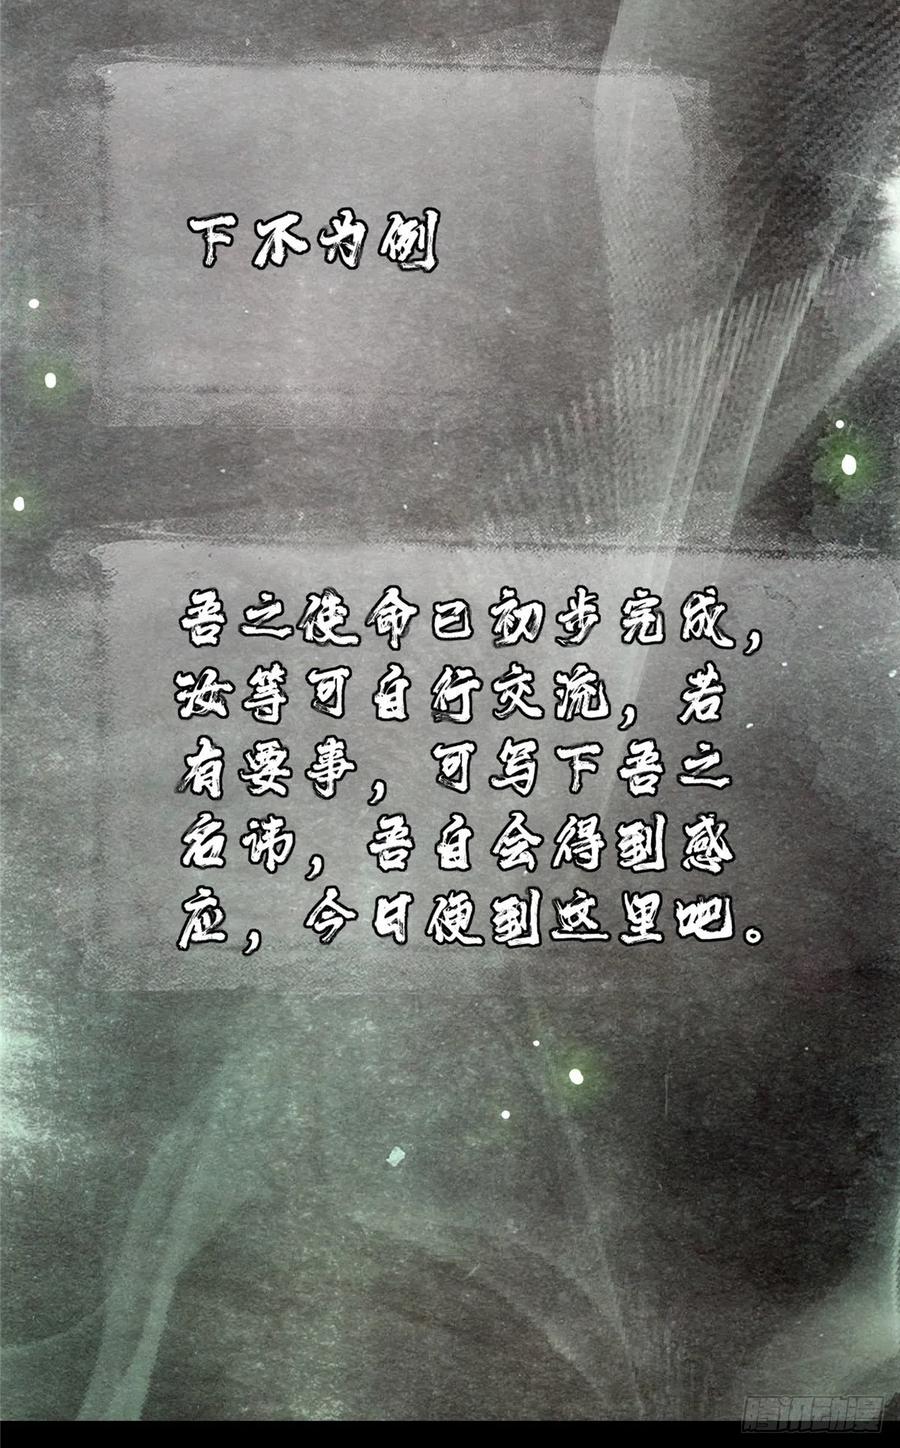 下不为例
吾之使命已初步完成，
汝等可自行交流，若
有要事，可写下吾之
名讳，吾自会得到感
应，今日便到这里吧。
腾讯动漫